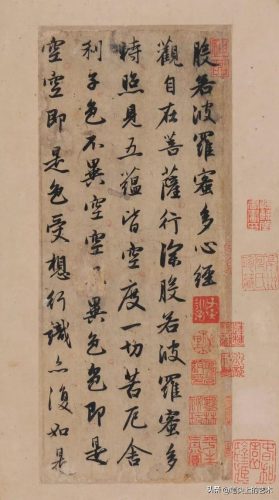 般若波羅蜜多心經
觀自在菩薩行深般若波羅蜜多
時照見五蘊皆空度一切苦厄舍
利子色不異空空、異色色即是
空空即是色受想行識亦復如是
头条 @尖上的艺术